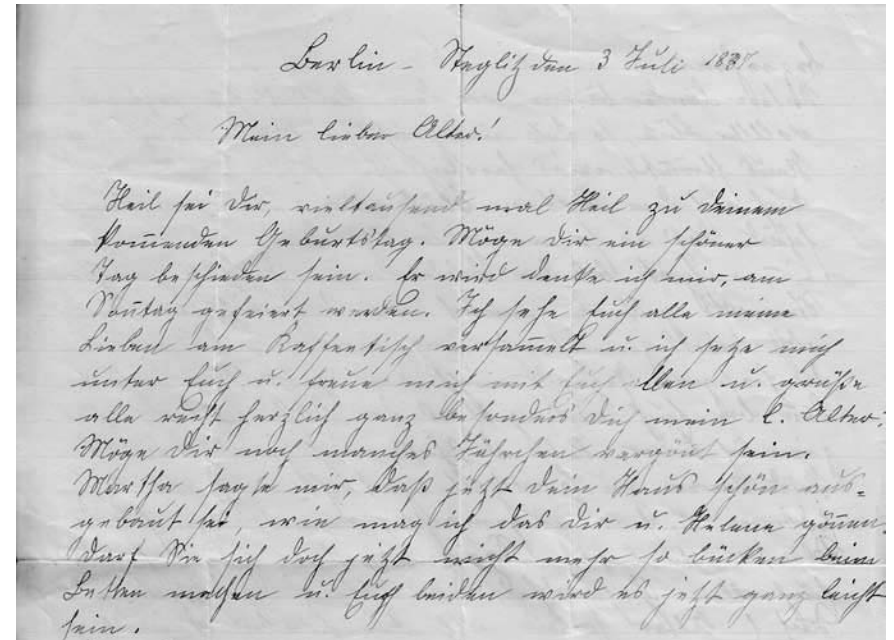 Berlin - Steglitz den 3 Juli 1937
Mein lieber Alter!
Heil sei Dir, vieltausend mal Heil zu Deinem
kom̅enden Geburtstag. Möge Dir ein schöner
Tag beschieden sein. Er wird denke ich mir, am
Son̅tag gefeiert werden. Ich sehe Euch alle meine
Lieben am Kaffeetisch versam̅elt u. ich setze mich
unter Euch u. freue mich mit Euch allen u. grüße
alle recht herzlich ganz besonders Dich mein l. Alter.
Möge Dir noch manches Jährchen vergön̅t sein.
Martha sagte mir, daß jetzt Dein Haus schön aus=
gebaut sei, wie mag ich das Dir u. Helene gön̅en.
Darf Sie sich doch jetzt nicht mehr so bücken beim
Betten machen u. Euch beiden wird es jetzt ganz leicht
sein.